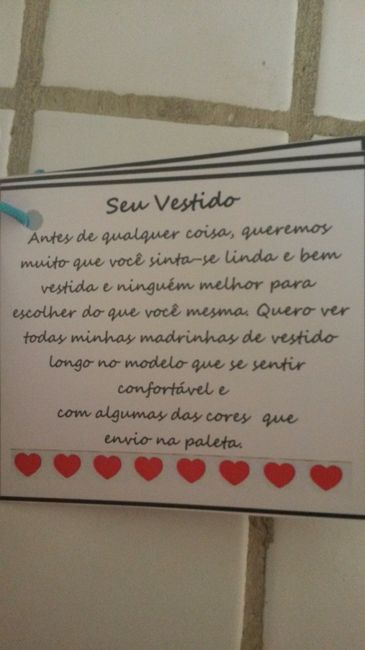 Seu Vestido
Antes de qualquer coisa, queremos
muito que você sinta-se linda e bem
vestida e ninguém melhor para
escolher do que você mesma. Quero ver
todas minhas madrinhas de vestido
longo no modelo que se sentir
confortável e
com algumas das cores que
envio na paleta.